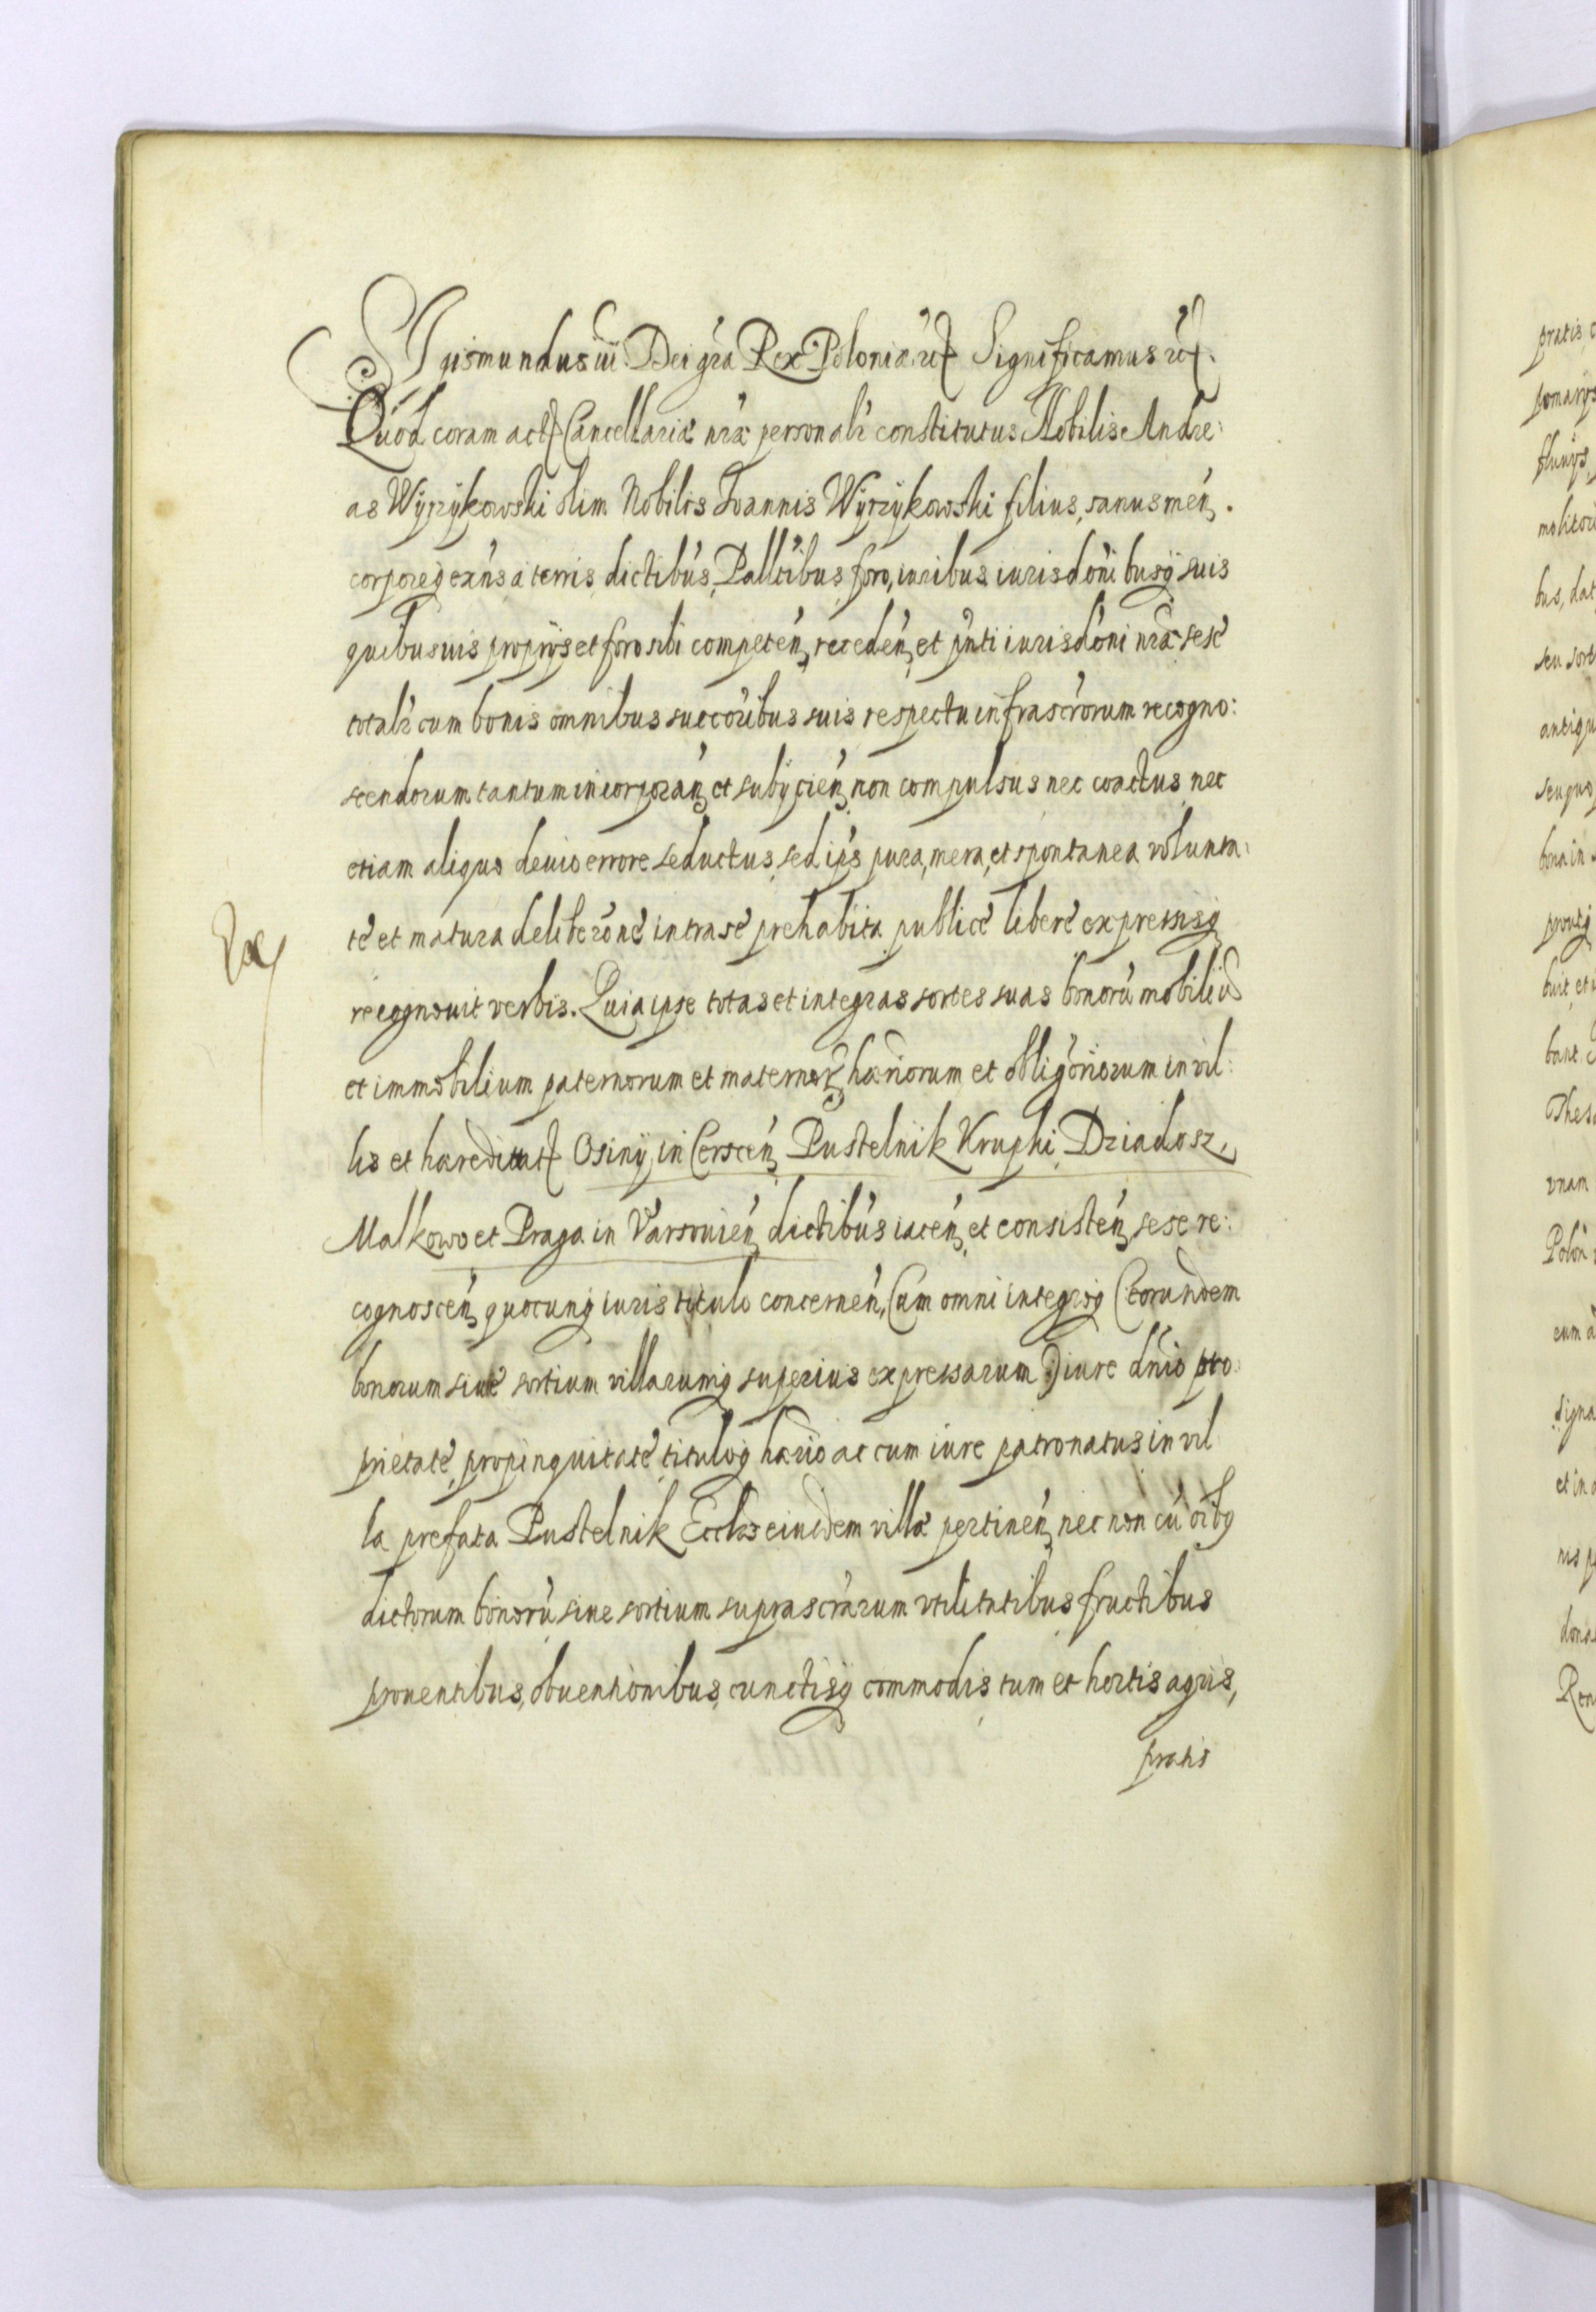 Sigismundus iii. Dei gra Rex Poloniæ etc Significamus etc.
Quod coram actis Cancellariæ nræ personalr constitutus Nobilis Andre:
as Wyrzykowski olim Nobilis Ioannis Wyrzykowski filius, sanus men.
corporeq exns a terris, dictibus, Palltibus, foro, iuribus iurisdonibusq suis
quibusuis proprys et foro sibi competen, receden, et pnti iurisdoni nræ sese
totalr cum bonis omnibus succoribus suis respectu infrascrorum recogno:
scendorum tantum incorporan, et subycien, non compulsus nec coactus, nec
etiam aliquo deuio errore seductus, sed ips pura, mera, et spontanea volunta:
te et matura deliberone intra se prehabita publice libere expressisq
recognouit verbis. Quia ipse totas et integras sortes suas bonoru mobiliu
et immobilium paternorum et maternor hæriorum et obligoriorum in vil:
lis et hæreditat Osiny in Cerscen, Pustelnik Kruphi, Dziadosz,
Malkowo et Praga in Varsouien, dictibus iacen, et consisten, sese re:
cognoscen, quocunq iuris titulo concernen, Cum omni integroq (eorundem
bonorum siue sortium villarumq superius expressarum) iure dnio pro:
prietate, propinquitate, tituloq hærio ac cum iure patronatus in vil
la prefata Pustelnik Eccliæ eiusdem villæ pertinen, nec non cu oibq
dictorum bonoru siue sortium suprascrarum vtilitatibus fructibus
prouentibus, obuentionibus, cunctisq commodis tum et hortis agris,
pratis
pratis
pomarys
fluuys,
molitor
bus, dat
seu sort
antiqu
seu quo
bona in
proutq
buit et
bant.
Thes
vnam
Polon
eum a
signa
et in
nis
dona
Ren